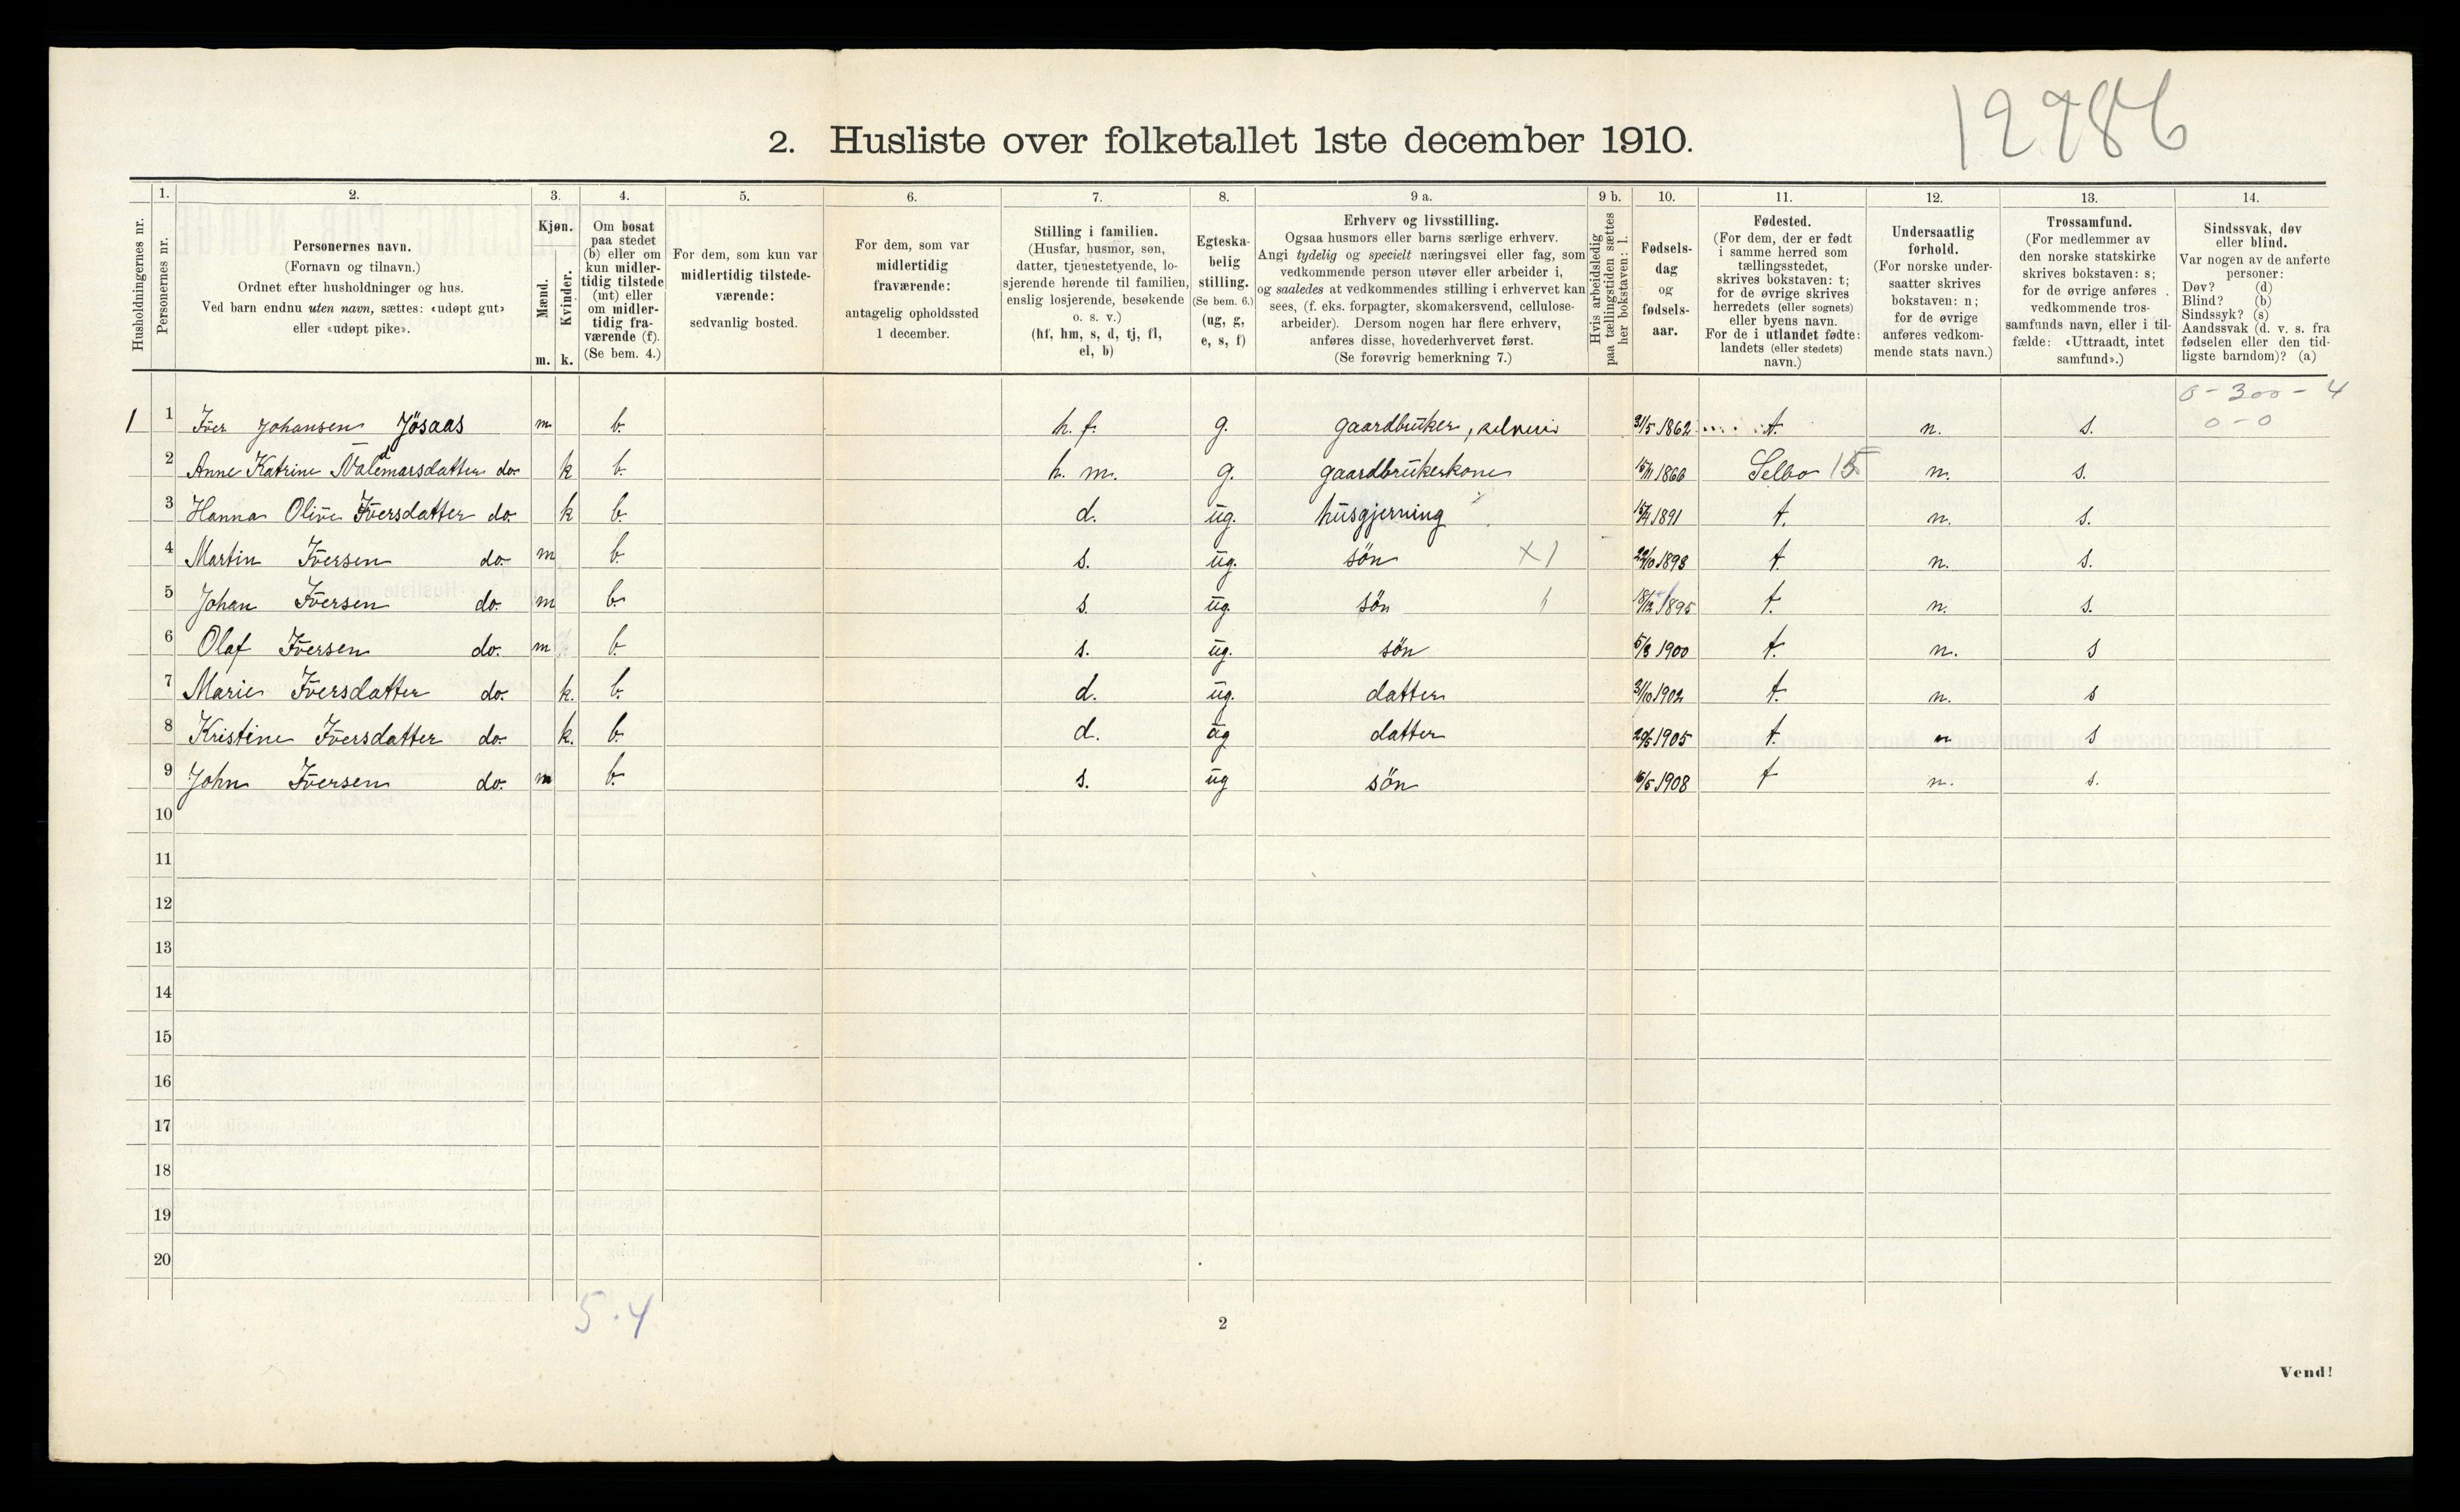 12786
2. Husliste over folketallet 1ste december 1910.
Husholdningernes nr.
1.
Personernes nr.
2.
Personernes navn.
(Fornavn og tilnavn.)
Ordnet efter husholdninger og hus.
Ved barn endnu uten navn, sættes: «udøpt gut»
eller «udøpt pike».
3.
Kjøn.
Mænd.
Kvinder.
m. k.
4.
Om bosat
paa stedet
(b) eller om
kun midler-
tidig tilstede
(mt) eller
om midler-
tidig fra-
værende (f).
(Se bem. 4.)
5.
For dem, som kun var
midlertidig tilstede-
værende:
sedvanlig bosted.
6.
For dem, som var
midlertidig
fraværende:
antagelig opholdssted
1 december.
7.
Stilling i familien.
(Husfar, husmor, søn,
datter, tjenestetyende, lo-
sjerende hørende til familien,
enslig losjerende, besøkende
o. s. v.)
(hf, hm, s, d, tj, fl,
el, b)
8.
Egteska-
belig
stilling.
(Se bem. 6.)
(ug, g,
e, s, f)
9 a.
Erhverv og livsstilling.
Ogsaa husmors eller barns særlige erhverv.
Angi tydelig og specielt næringsvei eller fag, som
vedkommende person utøver eller arbeider i,
og saaledes at vedkommendes stilling i erhvervet kan
sees, (f. eks. forpagter, skomakersvend, cellulose-
arbeider). Dersom nogen har flere erhverv,
anføres disse, hovederhvervet først.
(Se forøvrig bemerkning 7.)
9 b.
Hvis arbeidsledig
paa tællingstiden sættes
her bokstaven: l.
10.
Fødsels-
dag
og
fødsels-
aar.
11.
Fødested.
(For dem, der er født
i samme herred som
tællingsstedet,
skrives bokstaven: t;
for de øvrige skrives
herredets (eller sognets)
eller byens navn.
For de i utlandet fødte:
landets (eller stedets)
navn.)
12.
Undersaatlig
forhold.
(For norske under-
saatter skrives
bokstaven: n;
for de øvrige
anføres vedkom-
mende stats navn.)
13.
Trossamfund.
(For medlemmer av
den norske statskirke
skrives bokstaven: s;
for de øvrige anføres
vedkommende tros-
samfunds navn, eller i til-
fælde: «Uttraadt, intet
samfund».)
14.
Sindssvak, døv
eller blind.
Var nogen av de anførte
personer:
Døv? (d)
Blind? (b)
Sindssyk? (s)
Aandssvak (d. v. s. fra
fødselen eller den tid-
ligste barndom)? (a)
0 - 300 - 4
0 - 0
1 1 Iver Johansen Jösaas m b. h. f. g. gaardbruker, selveier 31/5 1862 t. n. s.
2 Anne Katrine Valdemarsdatter do. k b. h. m. g. gaardbrukerkone 15/11 1866 Selbo 15 n. s.
3 Hanna Olive Iversdatter do. k b. d. ug. husgjerning 15/4 1891 t. n. s.
4 Martin Iversen do. m b. s. ug. sön X 1 22/10 1893 t. n. s.
5 Johan Iversen do. m b. s. ug. sön 1 18/12 1895 t. n. s.
6 Olaf Iversen do. m b. s. ug. sön 5/3 1900 t. n. s
7 Marie Iversdatter do. k. b. d. ug. datter 31/10 1902 t. n. s
8 Kristine Iversdatter do. k. b. d. ug datter 1905 t. n s
9 John Iversen do. m b. s. ug sön 1908 t n. s.
10
11
12
13
14
15
16
17
18
19
20
5 . 4
2
Vend!